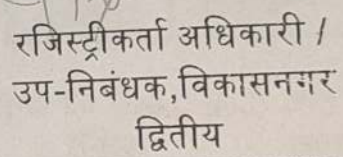 रजिस्ट्रीकर्ता अधिकारी /
उप-निबंधक,विकासनगर
द्वितीय